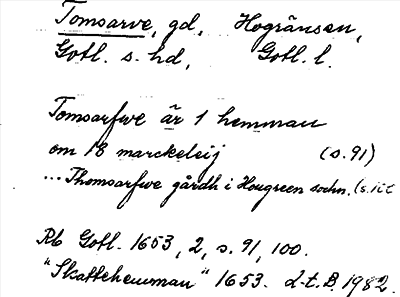 Tomsarve, gd, Hogränsen,
Gotl. s. hd, Gotl. l.
Tomsarfwe är 1 hemman
om 18 marckeleij (s. 91)
... Thomsarfwe gårdh i Hougreen sochn. (s. 100
Rb Gotl. 1653, 2, s. 91, 100.
"Skattehemman" 1653. d.t. B. 1982.